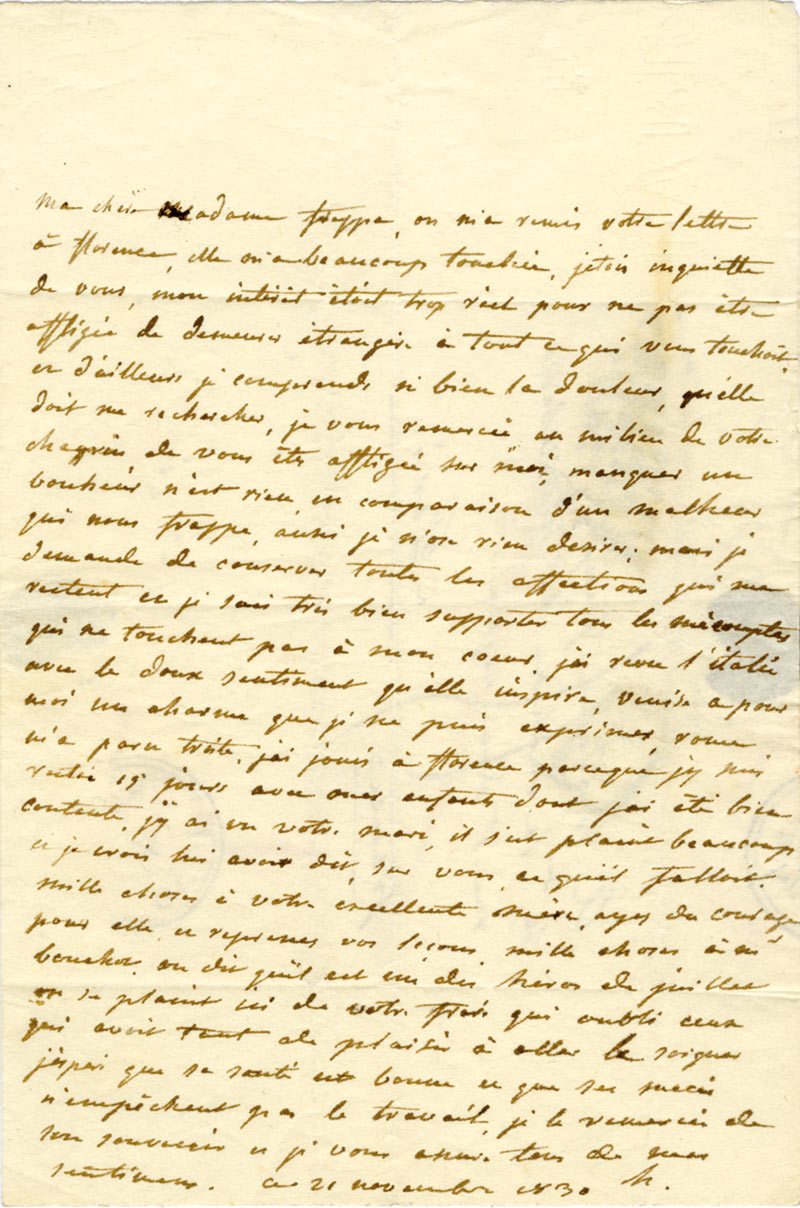 ma chère Madame frappa, on m'a remis votre lettre
à florence, elle m'a beaucoup touchée, j'etois inquiette
de vous, mon intérêt étoit trop réel pour ne pas être
affligée de demeurer étrangère à tout ce qui vous touchoit,
et d'ailleurs je comprends si bien la douleur, qu'elle
doit me rechercher, je vous remercie au milieu de votre
chagrin de vous être affligée sur moi, manquer un
bonheur n'est rien en comparaison d'un malheur
qui nous frappe, aussi je n'ose rien desirer; mais je
demande de conserver toutes les affections qui me
restent et je sais très bien supporter tous les mécomptes
qui ne touchent pas à mon coeur, j'ai revu l'italie
avec le doux sentiment qu'elle inspire, venise a pour
moi un charme que je ne puis exprimer, rome
m'a paru triste, j'ai joui à florence parceque j'y suis
restée 15 jours avec mes enfants dont j'ai été bien
contente, j'y ai vu votre mari, il s'est plaint beaucoup
et je crois lui avoir dit, sur vous, ce qu'il falloit.
mille choses à votre excellente mère, ayez du courage
pour elle et reprenez vos leçons, mille choses à mr
bouchot, on dit qu'il est un des héros de juillet
on se plaint ici de votre frère qui oubli ceux
qui avoit tant de plaisir à aller le soigner
j'espere que sa santé est bonne et que ses succès
n'empêchent pas le travail, je le remercie de
son souvenir et je vous assure tous de mes
sentimens. ce 21 novembre 1830 h.